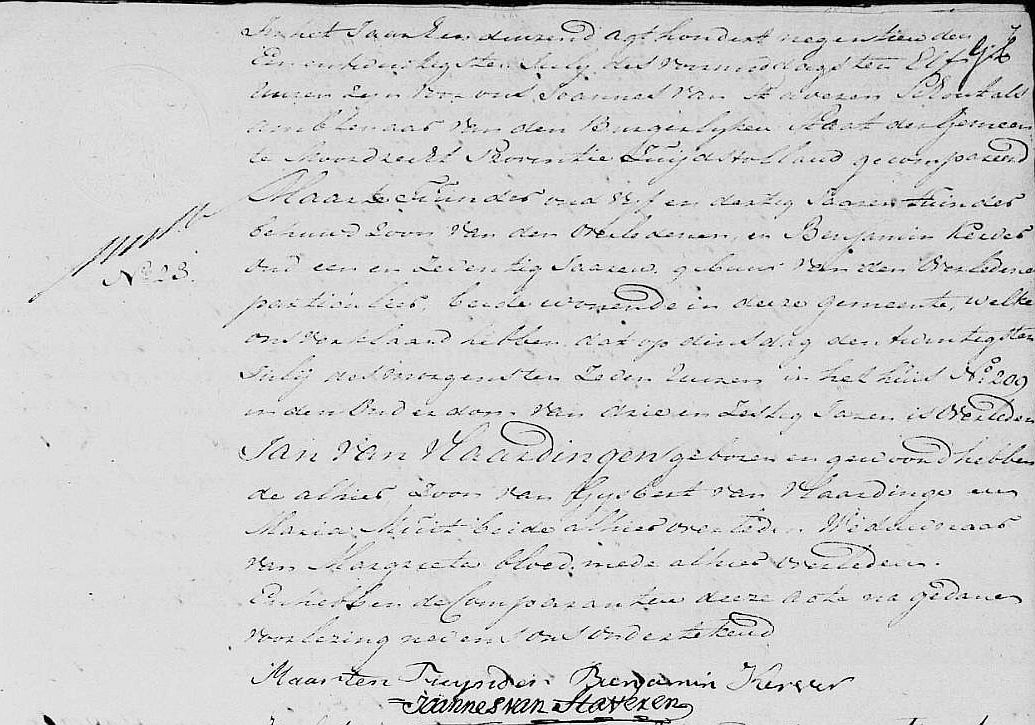 In het Jaar Een duizend agt hondert negentien den
Een entwintigsten July des voormiddags ten Elf
uuren zyn voor ons Joannes van Staveren Schout als
ambtenaar van den Burgerlyken Staat der Gemeen
te Moordrecht Provintie Zuijd Holland gecompareerd
Maarte Tuinder oud vyf en dertig Jaaren Tuinder
behuwd Zoon van den overledenen, en Benjamin Kerver
oud een en Zeventig Jaaren, gebuur van den Overledene
particulier, beide wonende in deeze gemeente, welke
ons verklaard hebben, dat op dinsdag den twintigsten
July des morgens ten Zeven uuren in het huis N.º 209
in den Ouderdom van drie en Zestig Jaren is Overleden
Jan van Vlaardingen geboren en gewoond hebben
de alhier Zoon van Gysbert van Vlaardinge en
Maria beide alhier overleden Weduwnaar
van Margreeta Bloed, mede alhier overleden.
En hebben de Comparanten deeze acte na gedane
voorlezing nevens ons ondertekend
N.º 23.
Maarten Tuynder Benjamin Kerver
Joannes van Staveren